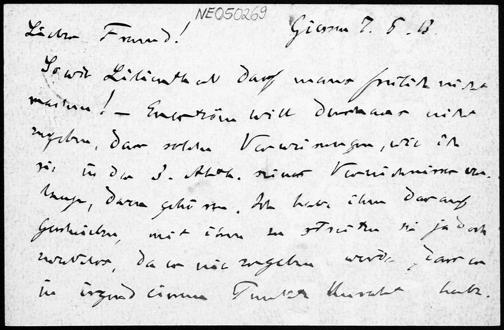 NE050269
Lieber Freund! Giessen 7. 6. 13
So wie Lilienthal darf mans freilich nicht
machen! – Eneström will durchaus nicht
zugeben, dass solche Verweisungen, wie ich
sie in der 3. Abth. seines Verzeichnisses ver-
lange, dazu gehören. Ich habe ihm darauf
geschrieben, mit ihm zu streiten sei ja doch
zwecklos, da er nie zugeben werde, dass er
in irgend einem Punkte Unrecht habe.